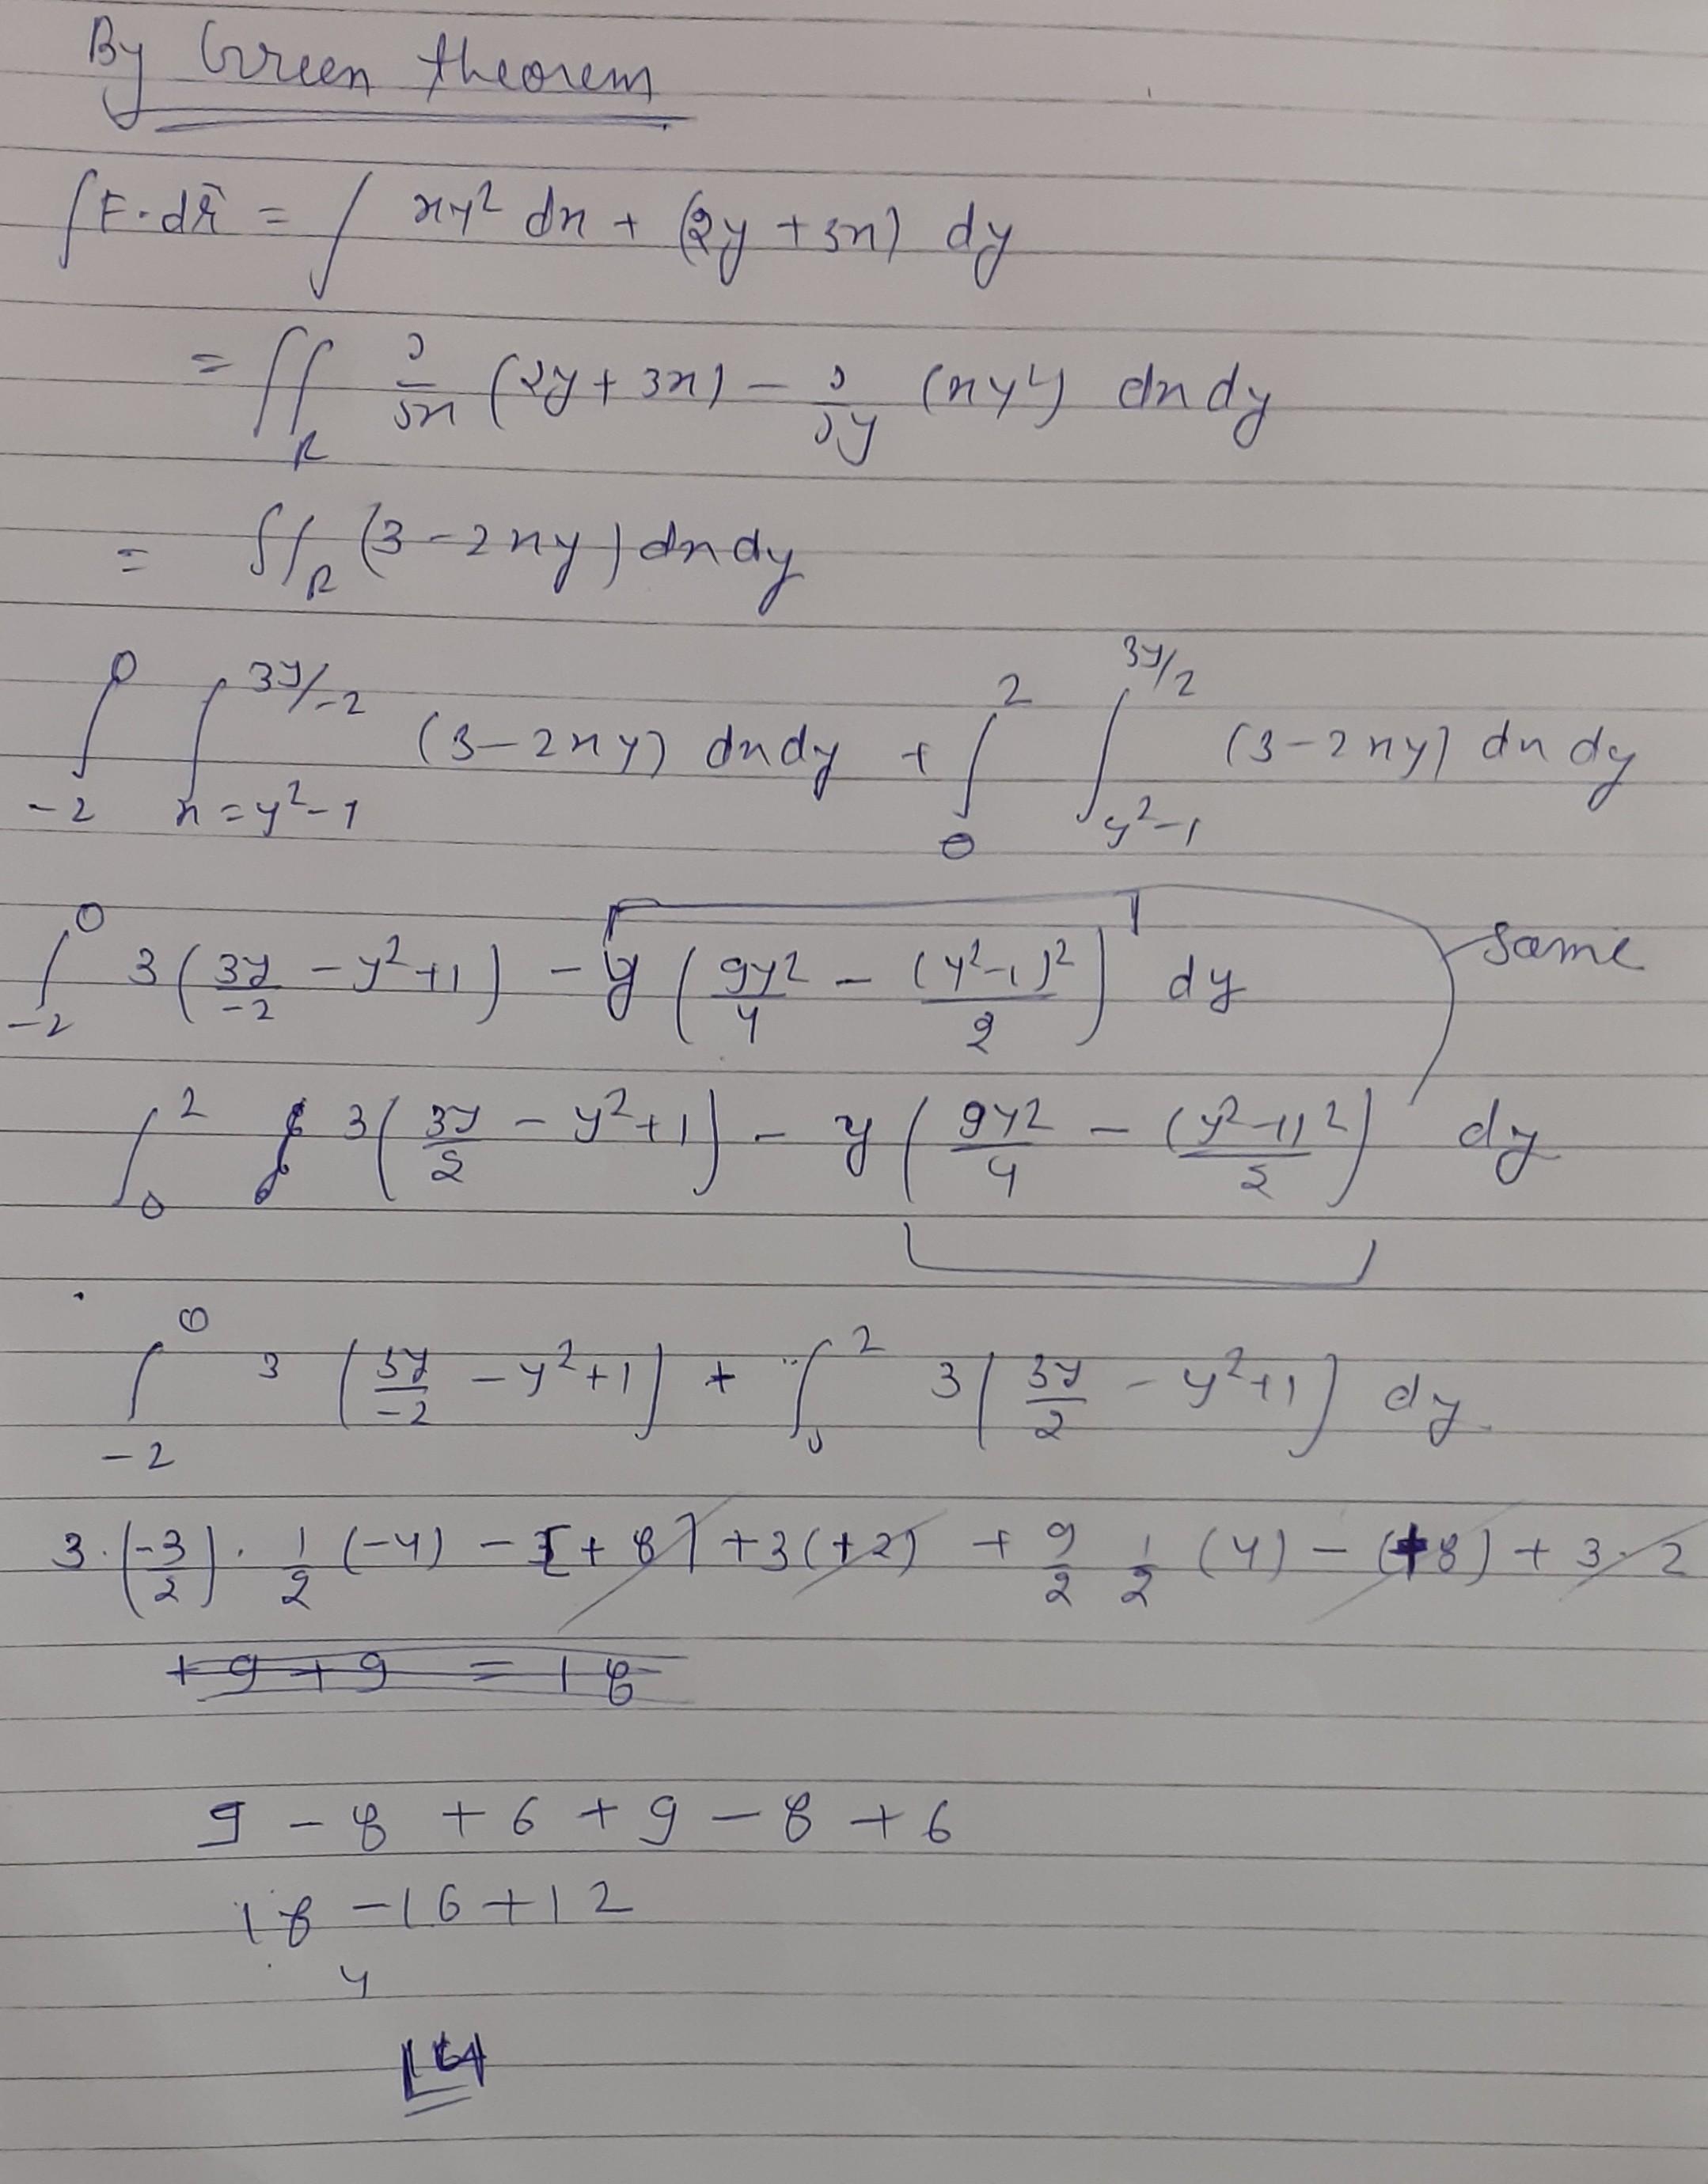 By Green theorem
∫F·dr̄ = ∫ xy² dx + (2y + 3x) dy
= ∬_R ∂/∂x (2y + 3x) - ∂/∂y (xy²) dx dy
= ∬_R (3 - 2xy) dx dy
∫_{-2}^{0} ∫_{x=y²-1}^{3y/-2} (3 - 2xy) dx dy + ∫_{0}^{2} ∫_{y²-1}^{3y/2} (3 - 2xy) dx dy
∫_{-2}^{0} 3(3y/-2 - y² + 1) - y (9y²/4 - (y²-1)²/2) dy same
∫_{0}^{2} 3(3y/2 - y² + 1) - y (9y²/4 - (y²-1)²/2) dy
∫_{-2}^{0} 3 (3y/-2 - y² + 1) + ∫_{0}^{2} 3(3y/2 - y² + 1) dy
3·(-3/2)·1/2 (-4) - [+8] + 3(+2) + 9/2 1/2 (4) - (+8) + 3·2
+9+9 = 18
9 - 8 + 6 + 9 - 8 + 6
18 - 16 + 12
4
14